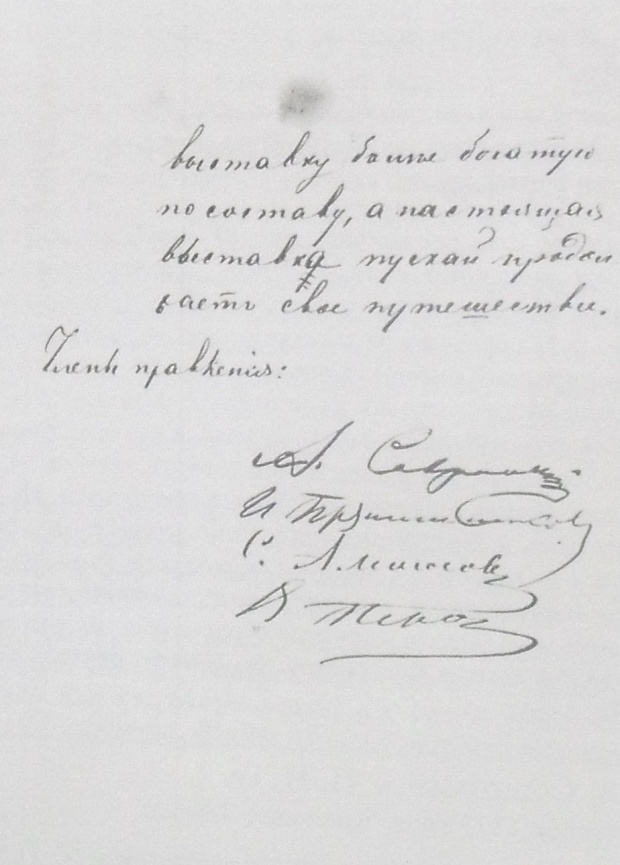 выставку болѣе богатую
по составу, а настоящая
выставка пускай продол
жаетъ свое путешествіе.
Члены правленія:
А. Саврасовъ
И Прянишниковъ
С. Аммосовъ
В Перовъ